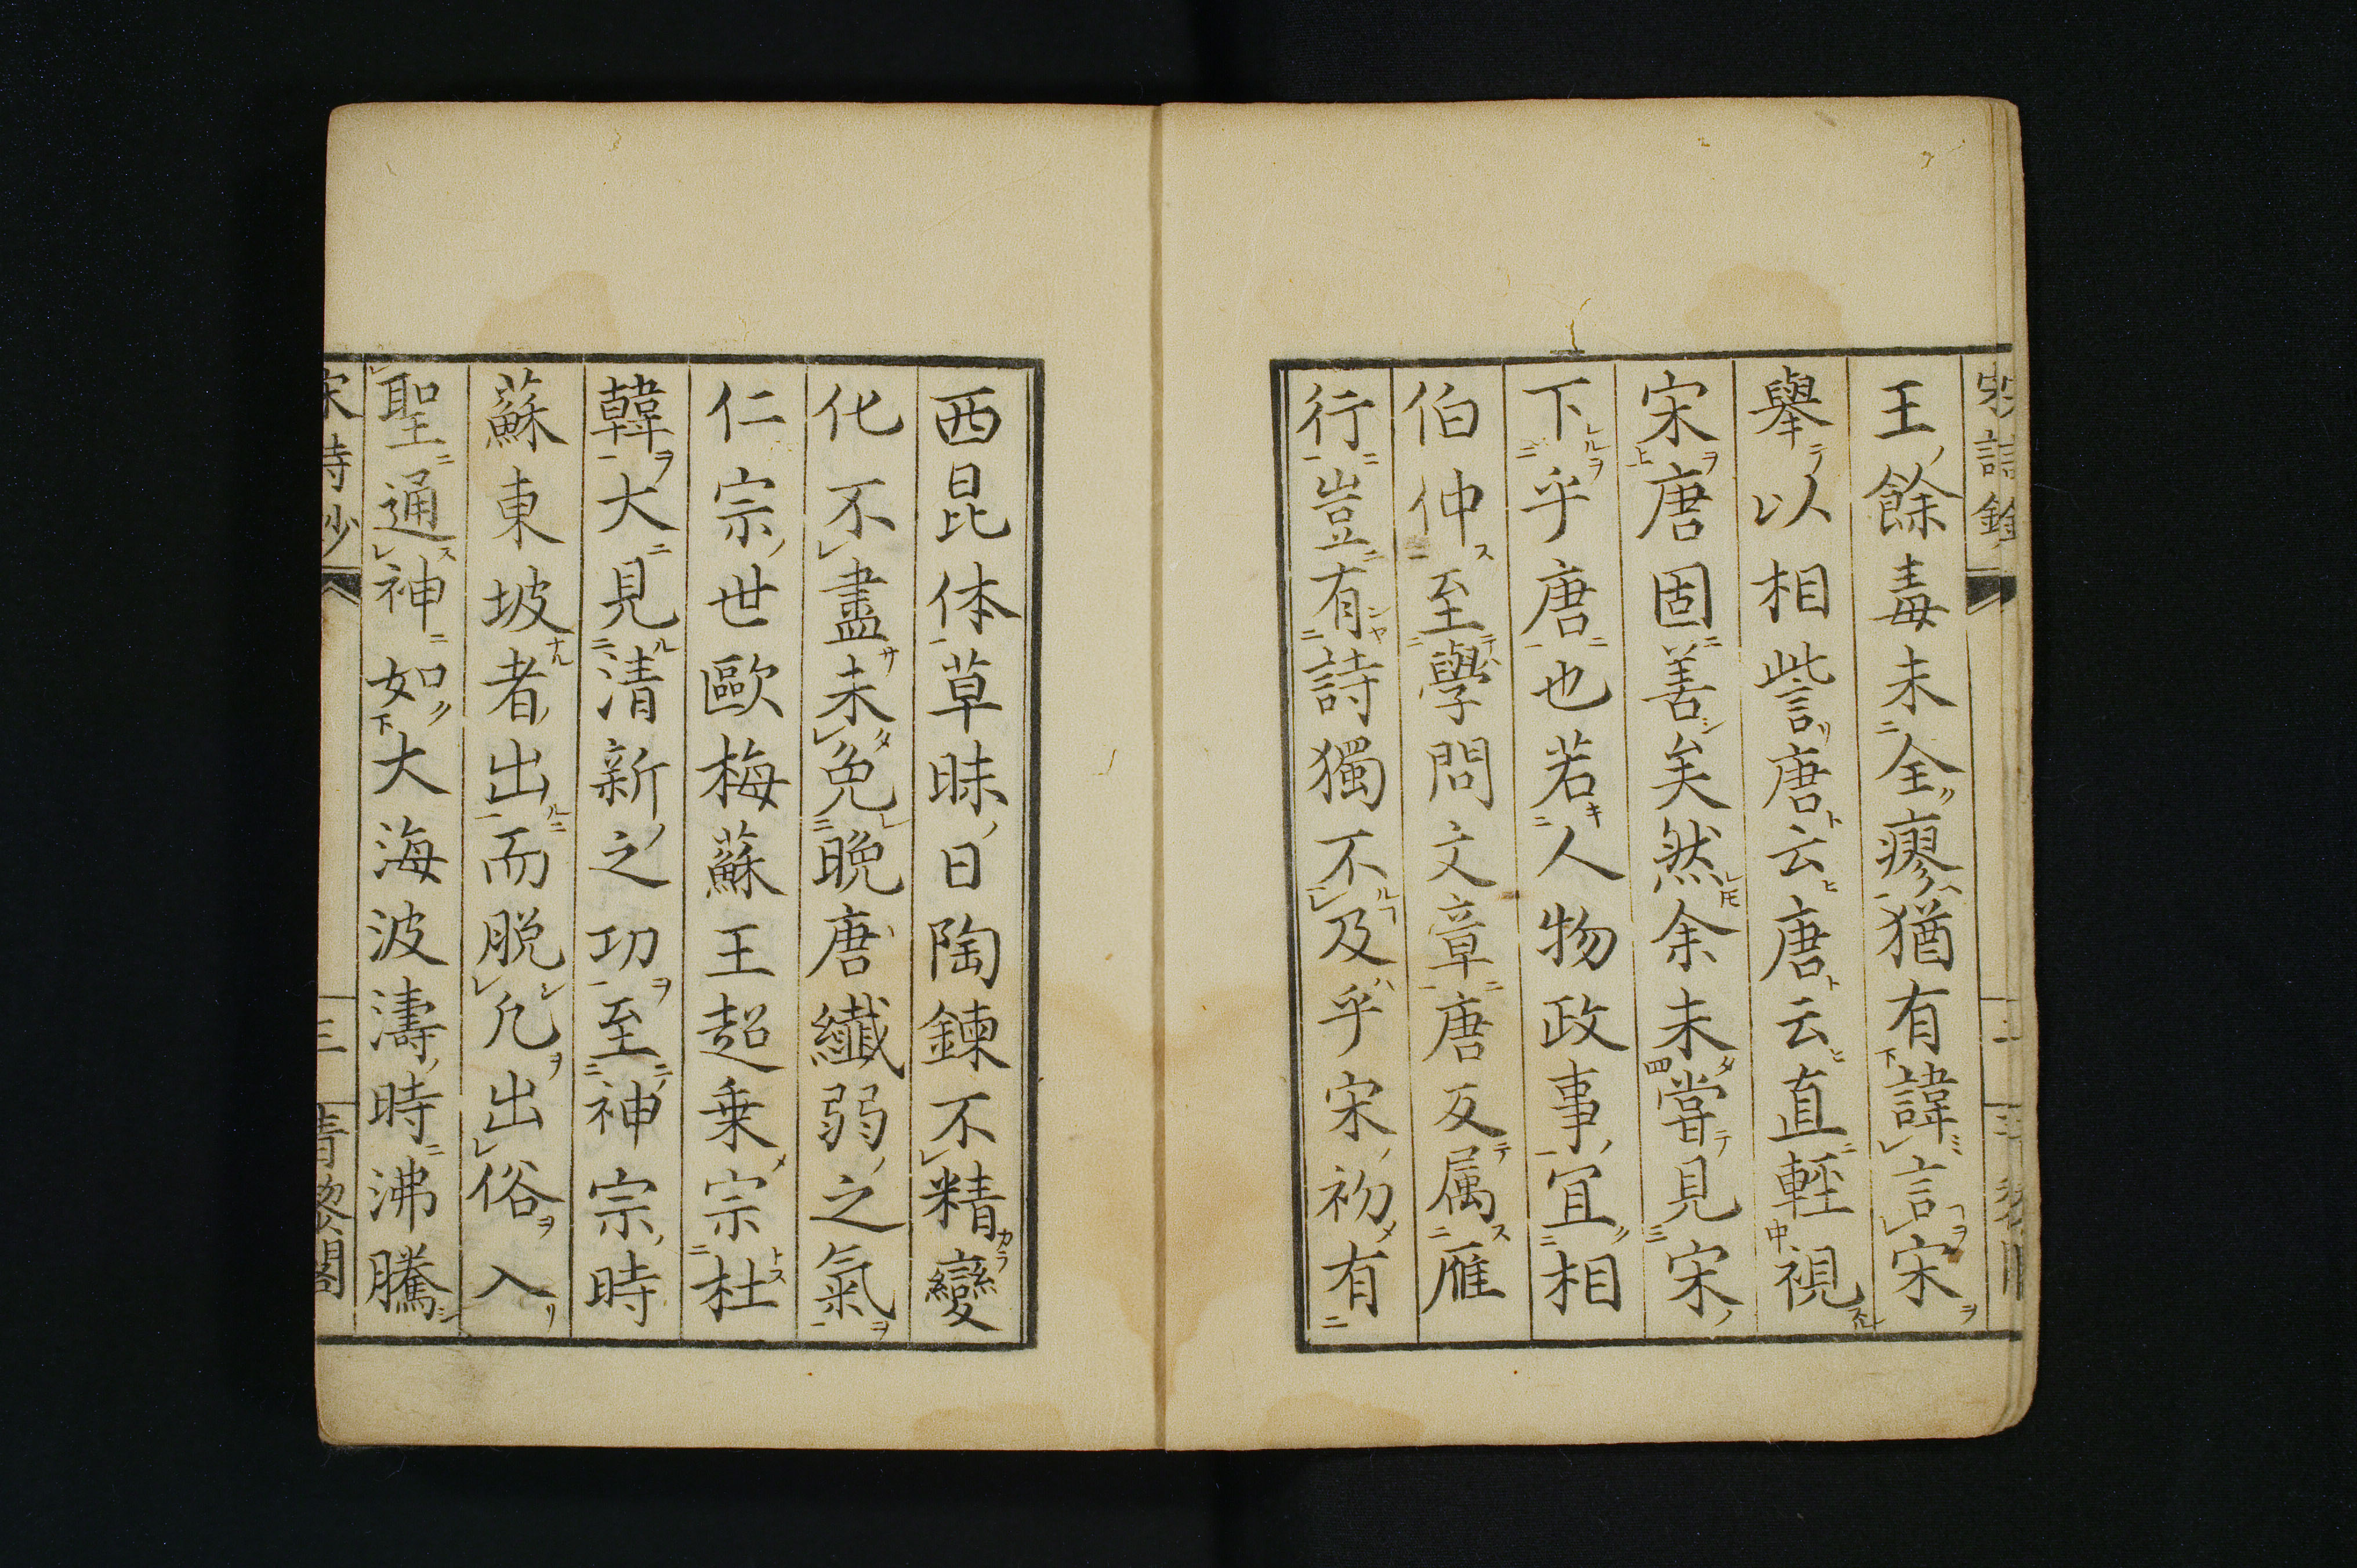 王餘毒未全瘳猶有諱言宋
舉以相訾唐云唐云直輕視
宋唐固善矣然余未嘗見宋
下乎唐也若人物政事宜相
伯仲至學問文章唐反属雁
行豈有詩獨不及乎宋初有
西昆体草昧日陶鍊不精變
化不盡未免晚唐纎弱之氣
仁宗世歐梅蘇王超乗宗杜
韓大見清新之功至神宗時
蘇東坡者出而脱凢出俗入
聖通神如大海波濤時沸騰
宋詩鈔 三 青黎閣